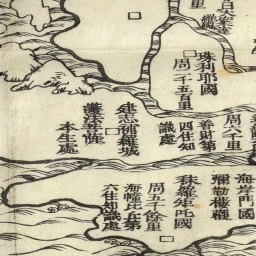 珠利耶國
周二千五百里
周六千里
善財第
四住知
識處
建志補羅城
護法菩薩
本生處
海岸門國
彌勒樓觀
秣羅矩吒國
周五千餘里
海幢比丘第
六住知識處